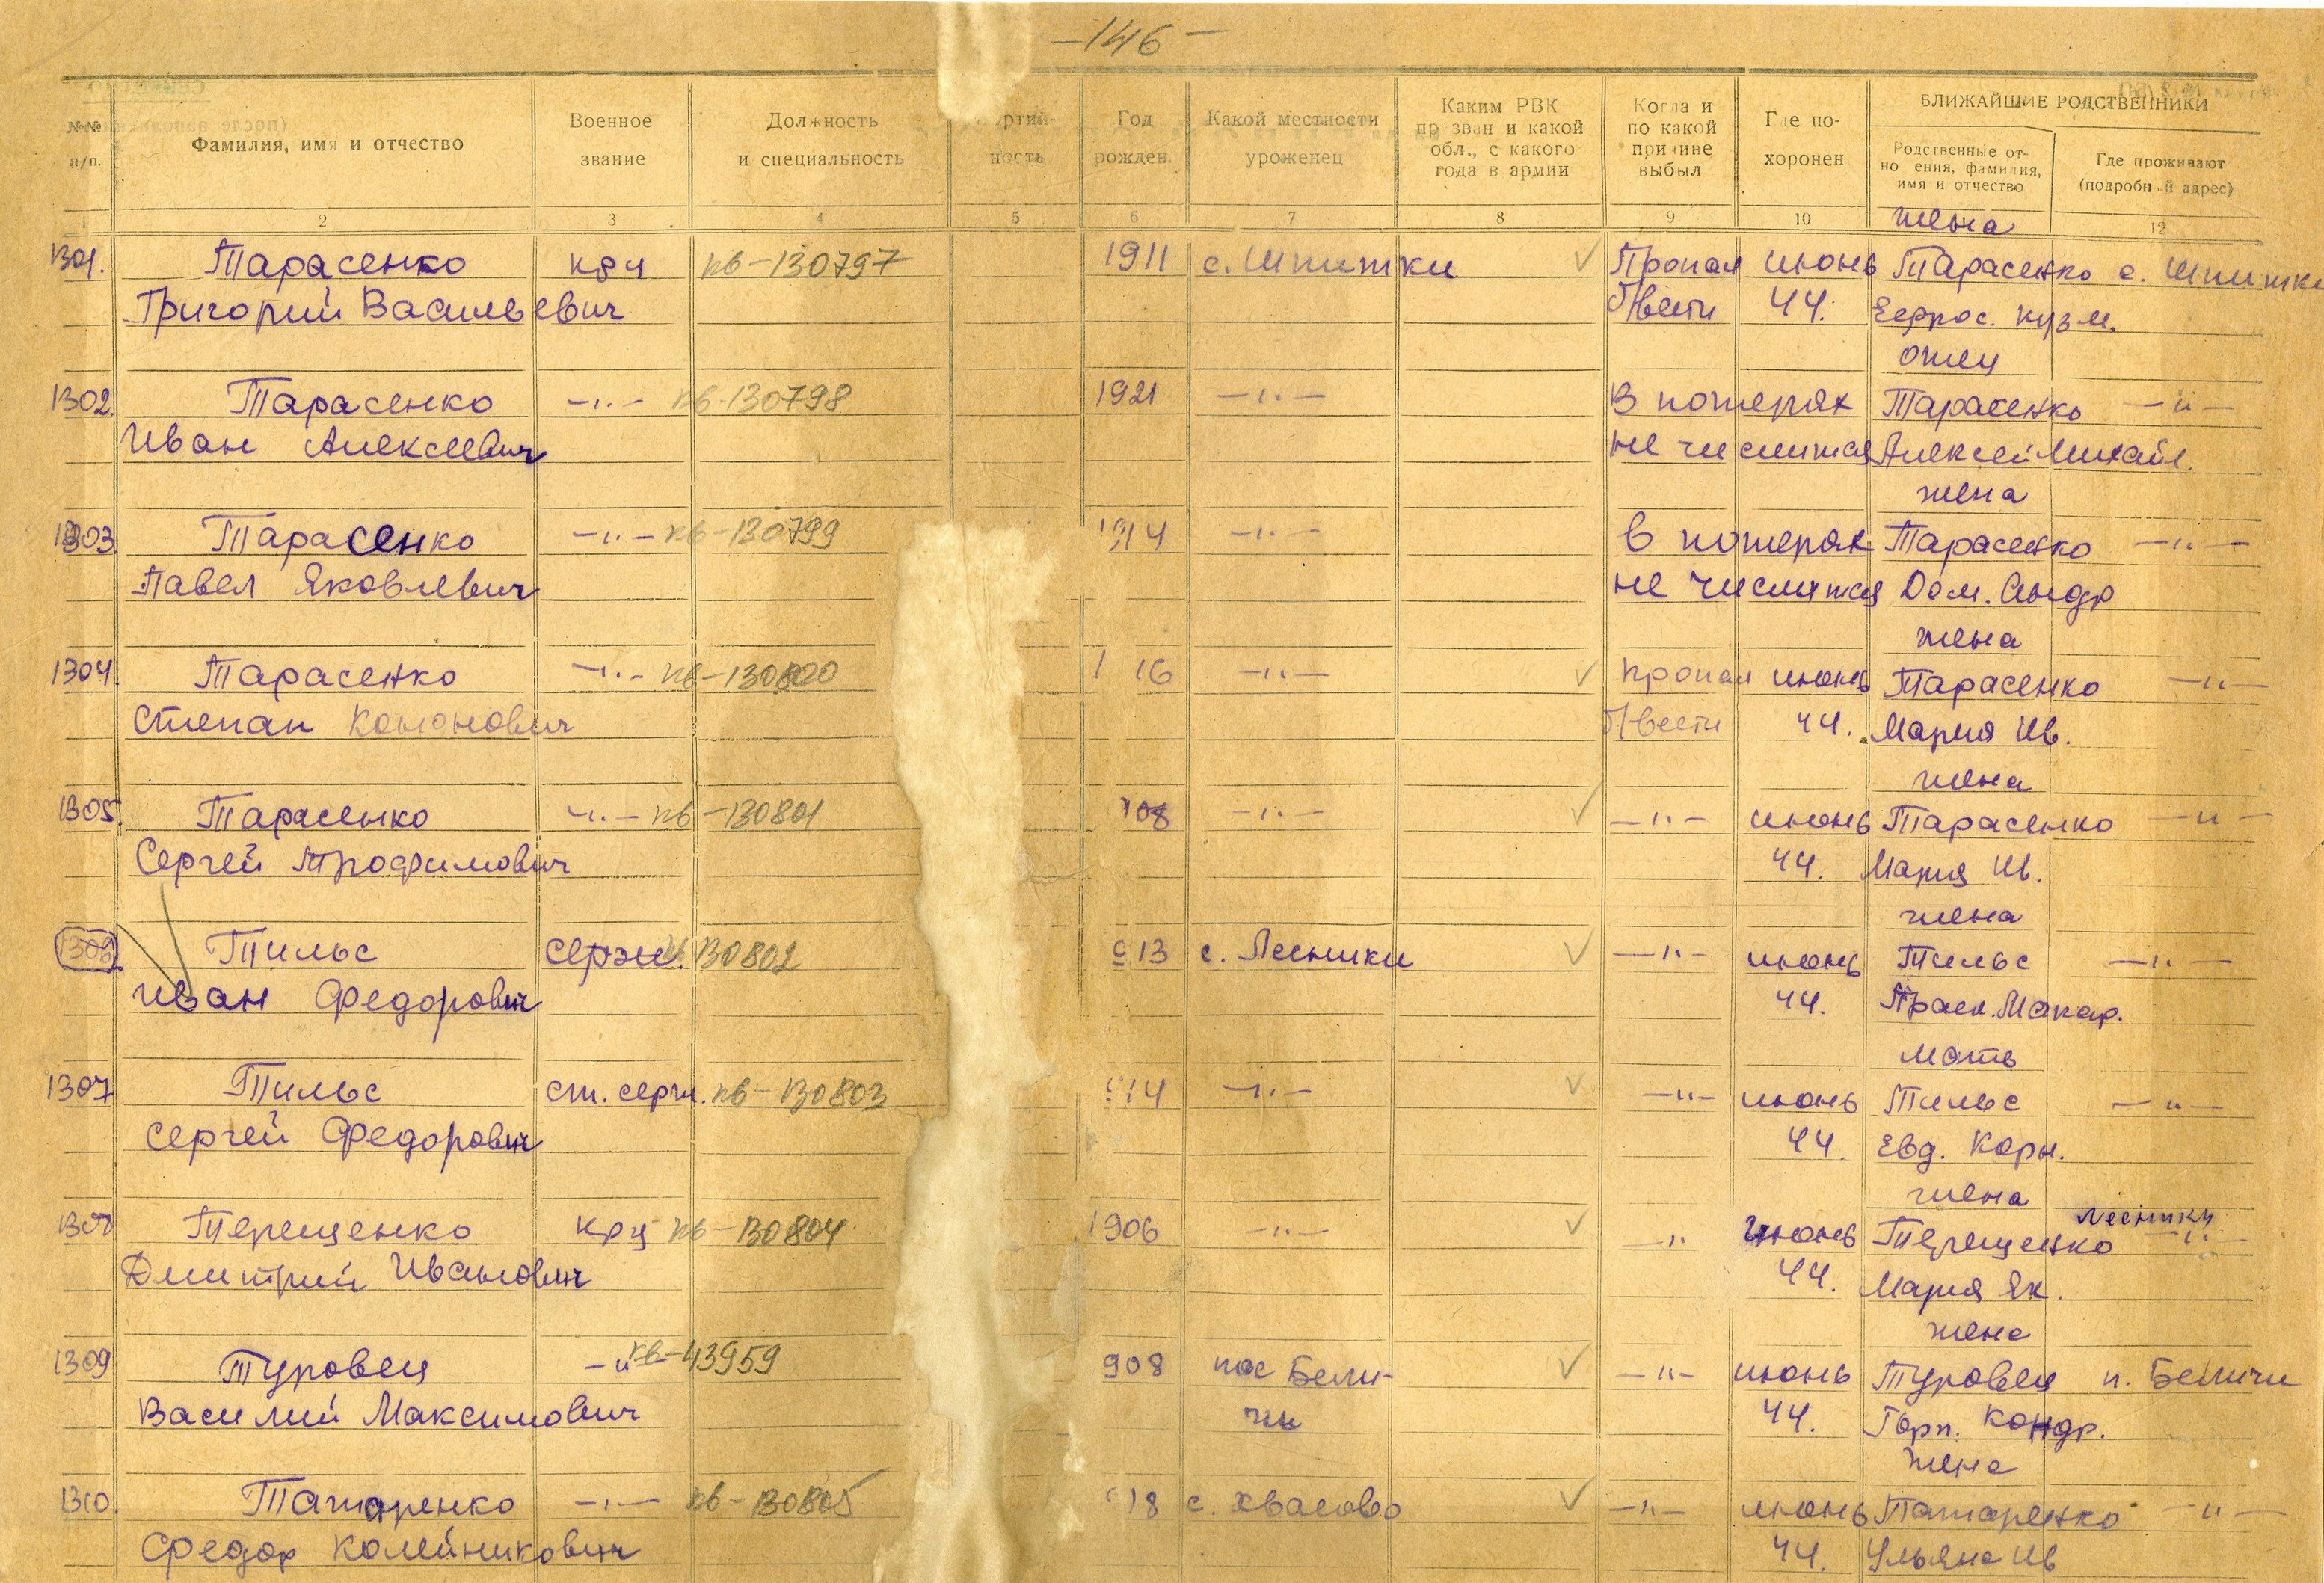 -146-
БЛИЖАЙШИЕ РОДСТВЕННИКИ
№№ п/п.
Фамилия, имя и отчество
Военное звание
Должность и специальность
ртий- ность
Год рожден.
Какой местности уроженец
Каким РВК пр зван и какой обл., с какого года в армии
Когда и по какой причине выбыл
Где по- хоронен
Родственные от- но ения, фамилия, имя и отчество
Где проживают (подробн й адрес)
1 2 3 4 5 6 7 8 9 10 12
жена
1301. Тарасенко кр-ц кв-130797 1911 с. Шпитки Пропал июнь Тарасенко с. Шпитки
Григорий Васильевич б/вести 44. Ефрос. Кузм.
отец
1302. Тарасенко -"- кв-130798 1921 -"- В потерях Тарасенко -"-
Иван Алексеевич не числится Алексей Михайл.
жена
1303 Тарасенко -"- кв-130799 1914 -"- В потерях Тарасенко -"-
Павел Яковлевич не числится Дом. Андр
жена
1304. Тарасенко -"- кв-130800 1 16 -"- пропал июнь Тарасенко -"-
Степан Кононович б/вести 44. Мария Ив.
жена
1305. Тарасенко -"- кв-130801 908 -"- -"- июнь Тарасенко -"-
Сергей Трофимович 44. Мария Ив.
жена
1306 Тильс сержн. 130802 913 с. Лесники -"- июнь Тильс -"-
Иван Федорович 44. Праск. Макар.
мать
1307 Тильс ст. серж. кв-130803 914 -"- -"- июнь Тильс -"-
Сергей Федорович 44. Евд. Корн.
жена
Лесники
1308 Терещенко кр-ц кв-130804 1906 -"- -"- июнь Терещенко -"-
Дмитрий Иванович 44. Мария Як.
жена
1309 Туровец -"- кв-43959 908 пос Бели- -"- июнь Туровец п. Беличи
Василий Максимович чи 44. Горп. Кондр.
жена
1310. Татаренко -"- кв-130805 918 с. -"- июнь Татаренко -"-
Федор 44. Ульяна Ив